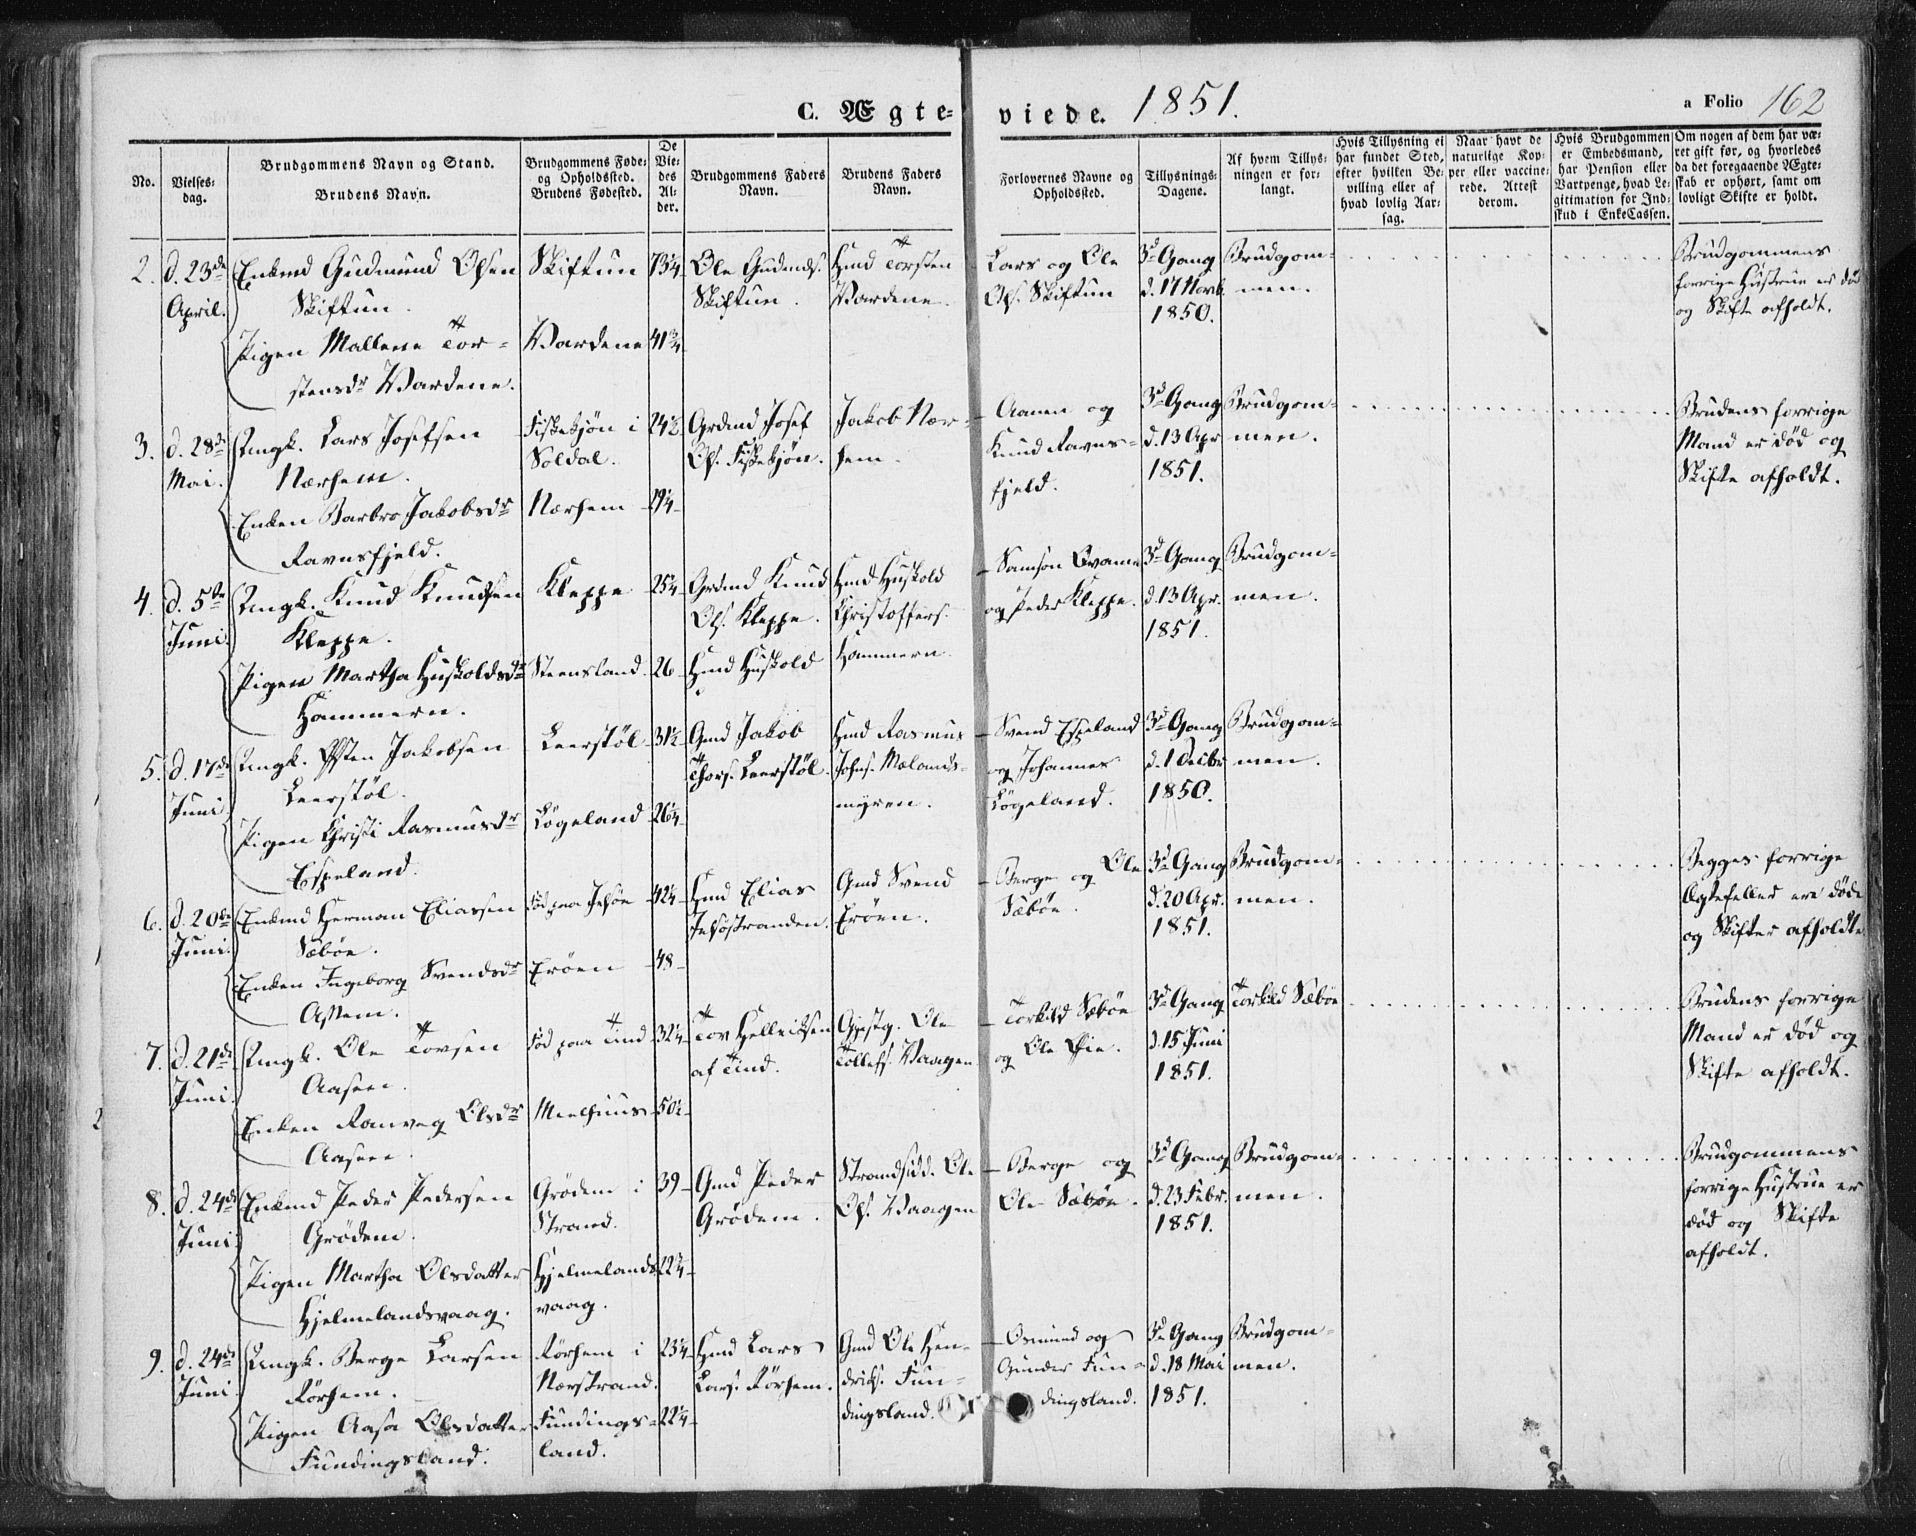 C. Ægte-
viede. 1851.
a Folio 162
No.
Vielses-
dag.
Brudgommens Navn og Stand.
Brudens Navn.
Brudgommens Føde-
og Opholdssted.
Brudens Fødested.
De
Vie-
des
Al-
der.
Brudgommens Faders
Navn.
Brudens Faders
Navn.
Forlovernes Navne og
Opholdssted.
Tillysnings-
Dagene.
Af hvem Tillys-
ningen er for-
langt.
Hvis Tillysning ei
har fundet Sted,
efter hvilken Be-
villing eller af
hvad lovlig Aar-
sag.
Naar havt de
naturlige Kop-
per eller vaccine-
rede. Attest
derom.
Hvis Brudgommen
er Embedsmand,
har Pension eller
Vartpenge, hvad Le-
gitimation for Ind-
skud i EnkeCassen.
Om nogen af dem har væ-
ret gift før, og hvorledes
da det foregaaende Ægte-
skab er ophørt, samt om
lovligt Skifte er holdt.
2.
d. 23de
April.
Enkmd Gudmund Olsen
Skiftun.
Pigen Mallene Tor-
stensdr Vardene.
Skiftun
Vardene
73 1/4
41 3/4
Ole Gudmds.
Skiftun.
Hmd Torsten
Vardene.
Lars og Ole
Ols. Skiftun
3d Gang
d. 17 Novb.
1850.
Brudgom-
men.
Brudgommens
forrige Hustrue er død
og Skifte afholdt.
3.
d. 28de
Mai.
Ungk. Lars Josefsen
Nærhem.
Enken Barbro Jakobsdr
Ravnsfjeld.
Fisketjøn i
Soldal.
Nærhem
24 1/2
Grdmd Josef
Ols. Fisketjøn.
Jakob Nær-
hem.
Aanen og
Knud Ravns-
fjeld.
3d Gang
d. 13 Apr.
1851.
Brudgom-
men.
Brudens forrige
Mand er død og
Skifte afholdt.
4.
d. 5te
Juni.
Ungk. Knud Knudsen
Kleppe.
Pigen Martha Huskoldsdr
Hammern.
Kleppe
Steensland.
25 1/4
26
Grdmd Knud
Ols. Kleppe.
Hmd Huskold
Hmd Huskold
Christoffers.
Hammern.
Samson
og Peder Kleppe.
3d Gang
d. 13 Apr.
1851.
Brudgom-
men.
5.
d. 17de
Juni
Ungk. Østen Jakobsen
Leerstøl.
Pigen Christi Rasmusdr
Espeland.
Leerstøl
Løgeland
31 1/2
26 1/4
Gmd Jakob
Thors. Leerstøl.
Hmd Rasmus
Johs. Mælands-
myren.
Svend Espeland
og Johannes
Løgeland.
3d Gang
d. 1 Decbr
1850.
Brudgom-
men.
6.
d. 20de
Juni.
Enkmd Herman Eliassen
Sæbøe.
Enken Ingeborg Svendsdr
Assem.
fød paa Jelsøe
Erøen
42 1/4
48
Hmd Elias
Jelsøstranden.
Gmd Svend
Erøen.
Berge og Ole
Sæbøe.
3d Gang
d. 20 Apr.
1851.
Brudgom-
men.
Begges forrige
Ægtefeller ere døde
og Skifter afholdte
7.
d. 21de
Juni.
Ungk. Ole Tovsen
Aasen.
Enken Ranveg Olsdr
Aasen.
fød paa Tind
Mielhuus
32 1/4
50 1/2
Tov Hellriksen
af Tind.
Gjestg. Ole
Tollefs. Vaagen
Torkild Sæbøe
og Ole Øie.
3d Gang
d. 15 Juni
1851.
Torkild Sæbøe
Brudens forrige
Mand er død og
Skifte afholdt.
8.
d. 24de
Juni.
Enkmd Peder Pedersen
Grødem.
Pigen Martha Olsdatter
Hjelmelandsvaag.
Grødem i
Strand.
Hjelmelands-
vaag.
39
22 3/4
Gmd Peder
Grødem.
Strandsidd. Ole
Ols. Vaagen
Berge og
Ole Sæbøe.
3d Gang
d. 23 Febr.
1851.
Brudgom-
men.
Brudgommens
forrige Hustrue er
død og Skifte
afholdt.
9.
d. 24de
Juni
Ungk. Berge Larsen
Rørhem.
Pigen Aasa Olsdatter
Fundingsland.
Rørhem i
Nærstrand.
Fundings-
land.
23 1/4
22 1/4
Hmd Lars
Lars. Rørhem.
Gmd Ole Hen-
driks. Fun-
dingsland.
Osmund og
Gunder Fun-
dingsland.
3d Gang
d. 18 Mai
1851.
Brudgom-
men.